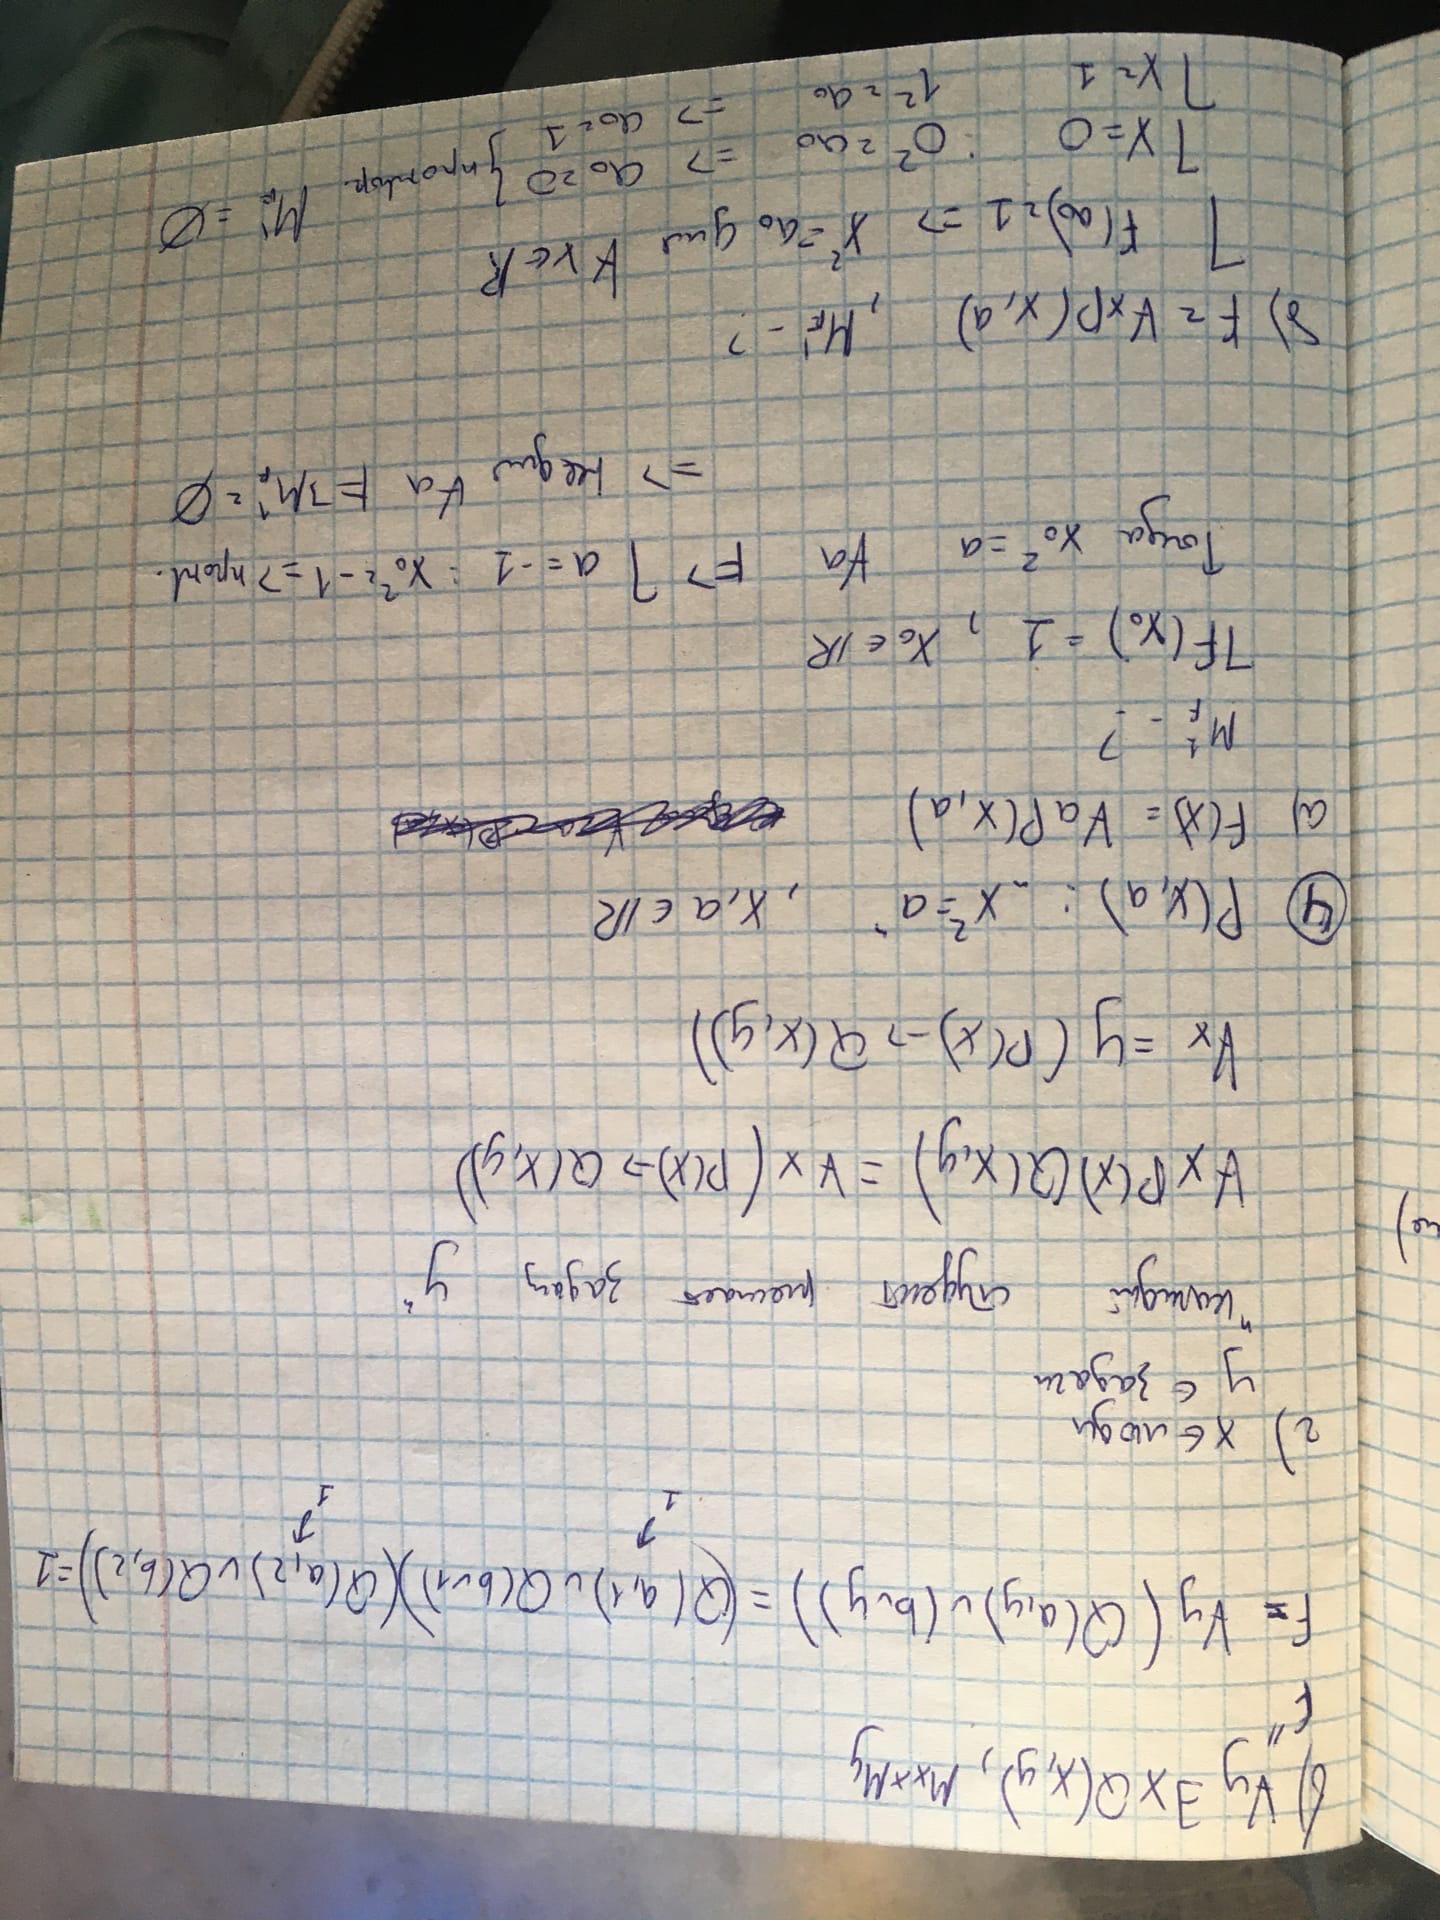 б) ∀y ∃x Q(x,y), Mx×My
"
F
F = ∀y (Q(a,y) ∨ (b,y)) = (Q(a,1) ∨ Q(b,1))(Q(a,2) ∨ Q(b,2)) = 1
1 1
2) x ∈ люди
y ∈ задачи
"каждый студент решает задачу y"
∀x P(x) (Q(x,y) = ∀x (P(x) → Q(x,y))
∀x = y (P(x) → Q(x,y))
④ P(x,a) : „x² = a“, x,a ∈ ℝ
а) F(x) = ∀a P(x,a)
M¹F - ?
⅂ F(x₀) = 1, x₀ ∈ ℝ
Тогда x₀² = a ∀a => ⅂ a = -1 : x₀² = -1 => прот.
=> не для ∀a => M¹F = ∅
б) F = ∀x P(x,a), M¹F - ?
⅂ F(a₀) = 1 => x² = a₀ для ∀x ∈ ℝ
⅂ x = 0 : 0² = a₀ => a₀ = 0 } противор. M¹F = ∅
⅂ x = 1 1² = a₀ => a₀ = 1